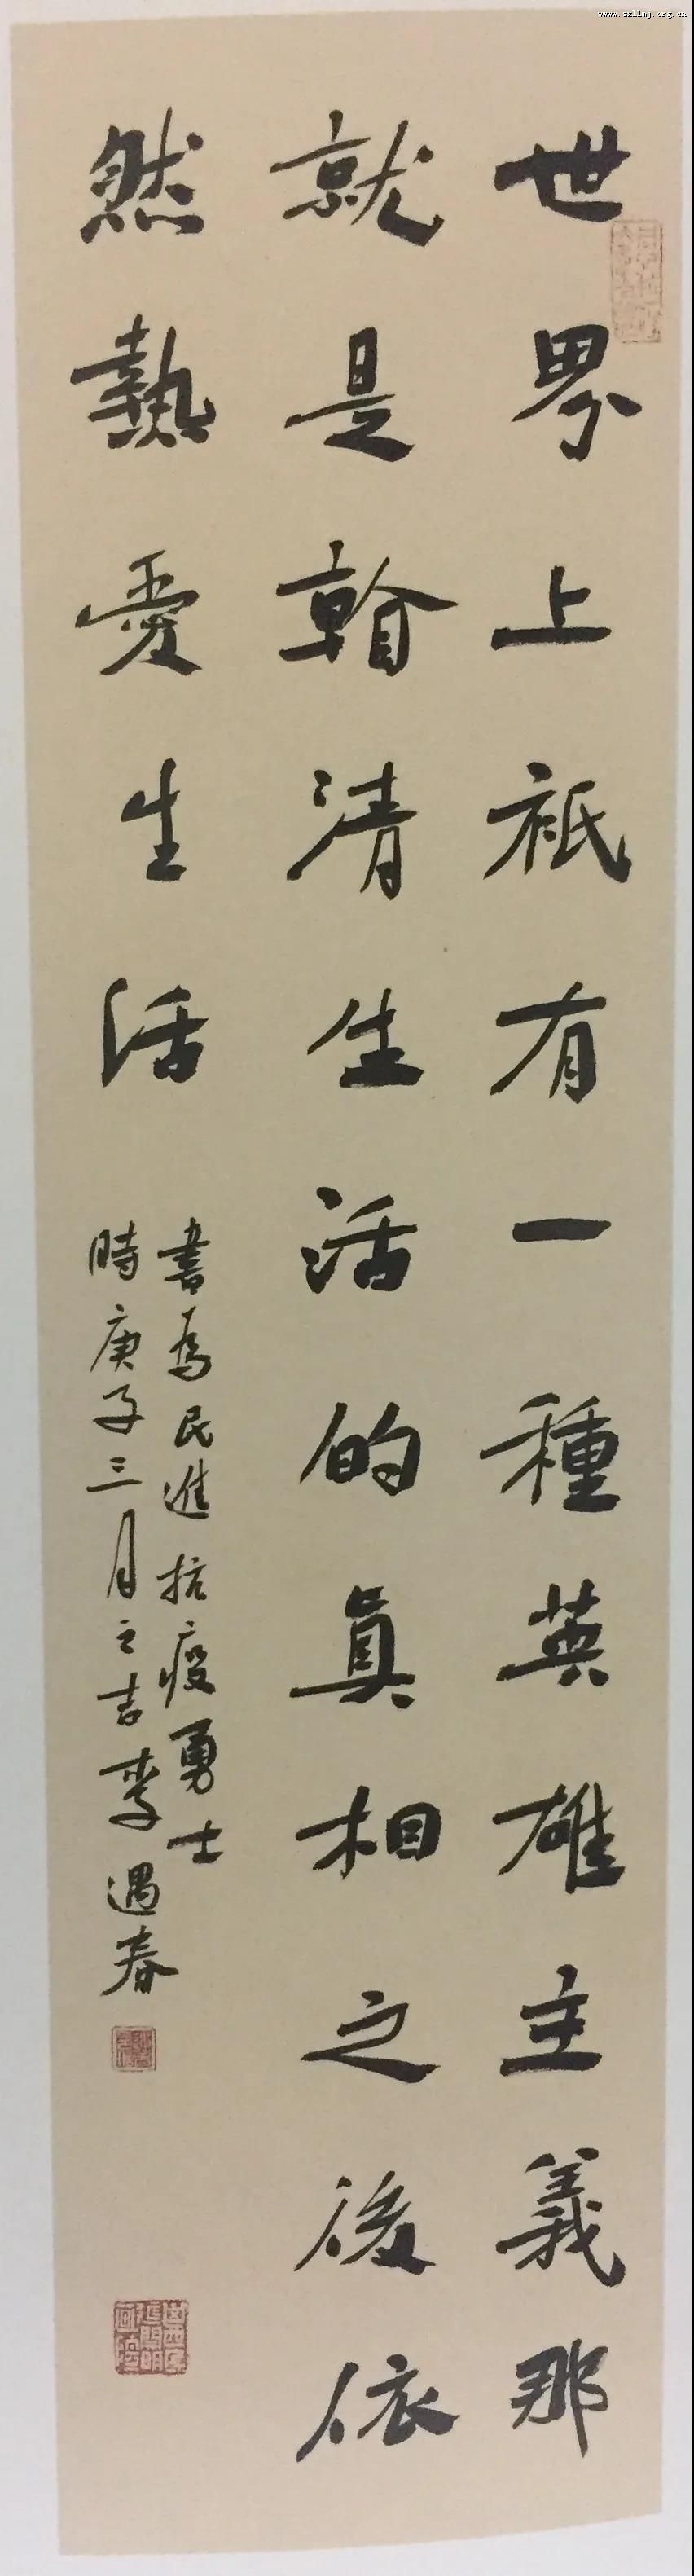 世界上祇有一種英雄主義那
就是認清生活的真相之後依
然熱愛生活
書為民進抗疫勇士
時庚子三月之吉李遇春
www.sxllmj.org.cn